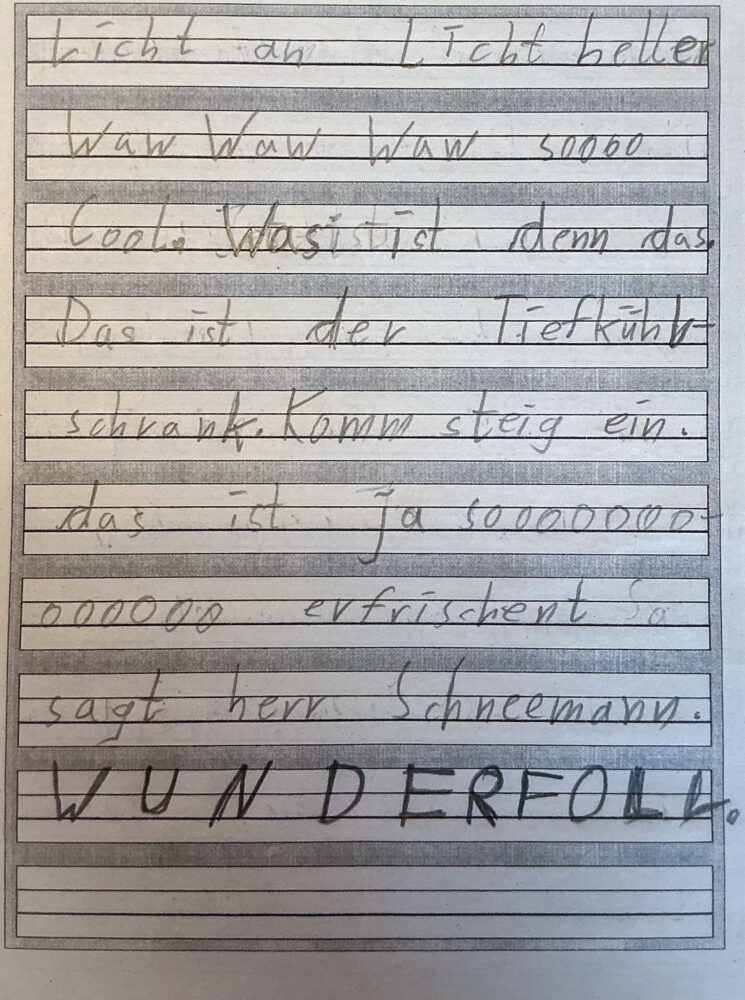 Licht an Licht heller
Waw Waw Waw soooo
Cool. Was ist denn das.
Das ist der Tiefkühl-
schrank. Komm steig ein.
das ist ja soooooooo-
oooooo erfrischent
sagt herr Schneemann.
WUNDERFOLL.